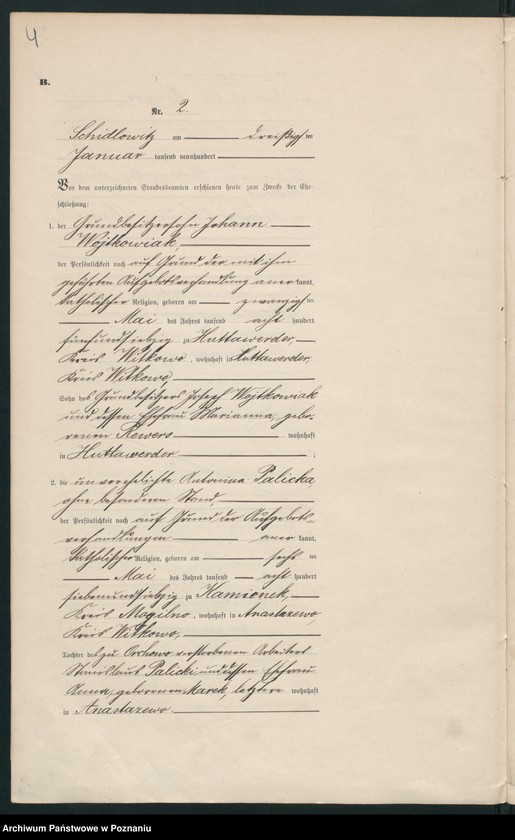 4
B.
Nr. 2.
Schidlowitz am dreißigsten
Januar tausend neunhundert
Vor dem unterzeichneten Standesbeamten erschienen heute zum Zwecke der Ehe-
schließung:
1. der Grundbesitzersohn Johann
Wojtkowiak,
der Persönlichkeit nach auf Grund der mit ihm
geführten Aufgebotsverhandlung anerkannt,
katholischer Religion, geboren am zwanzigsten
Mai des Jahres tausend acht hundert
fünfundsiebzig zu Huttawerder,
Kreis Witkowo, wohnhaft in Huttawerder,
Kreis Witkowo,
Sohn des Grundbesitzers Joseph Wojtkowiak
und dessen Ehefrau Marianna, gebo-
renen Rewers wohnhaft
in Huttawerder ;
2. die unverehelichte Antonina Palicka,
ohne besonderen Stand,
der Persönlichkeit nach auf Grund der Aufgebots-
verhandlungen anerkannt,
katholischer Religion, geboren am sechsten
Mai des Jahres tausend acht hundert
siebenundsiebzig zu Kamionek,
Kreis Mogilno, wohnhaft in Anastazewo,
Kreis Witkowo,
Tochter des zu Orchowo verstorbenen Arbeiters
Stanislaus Palicki und dessen Ehefrau
Anna, geborenen Marek, letztere wohnhaft
in Anastazewo.
Archiwum Państwowe w Poznaniu